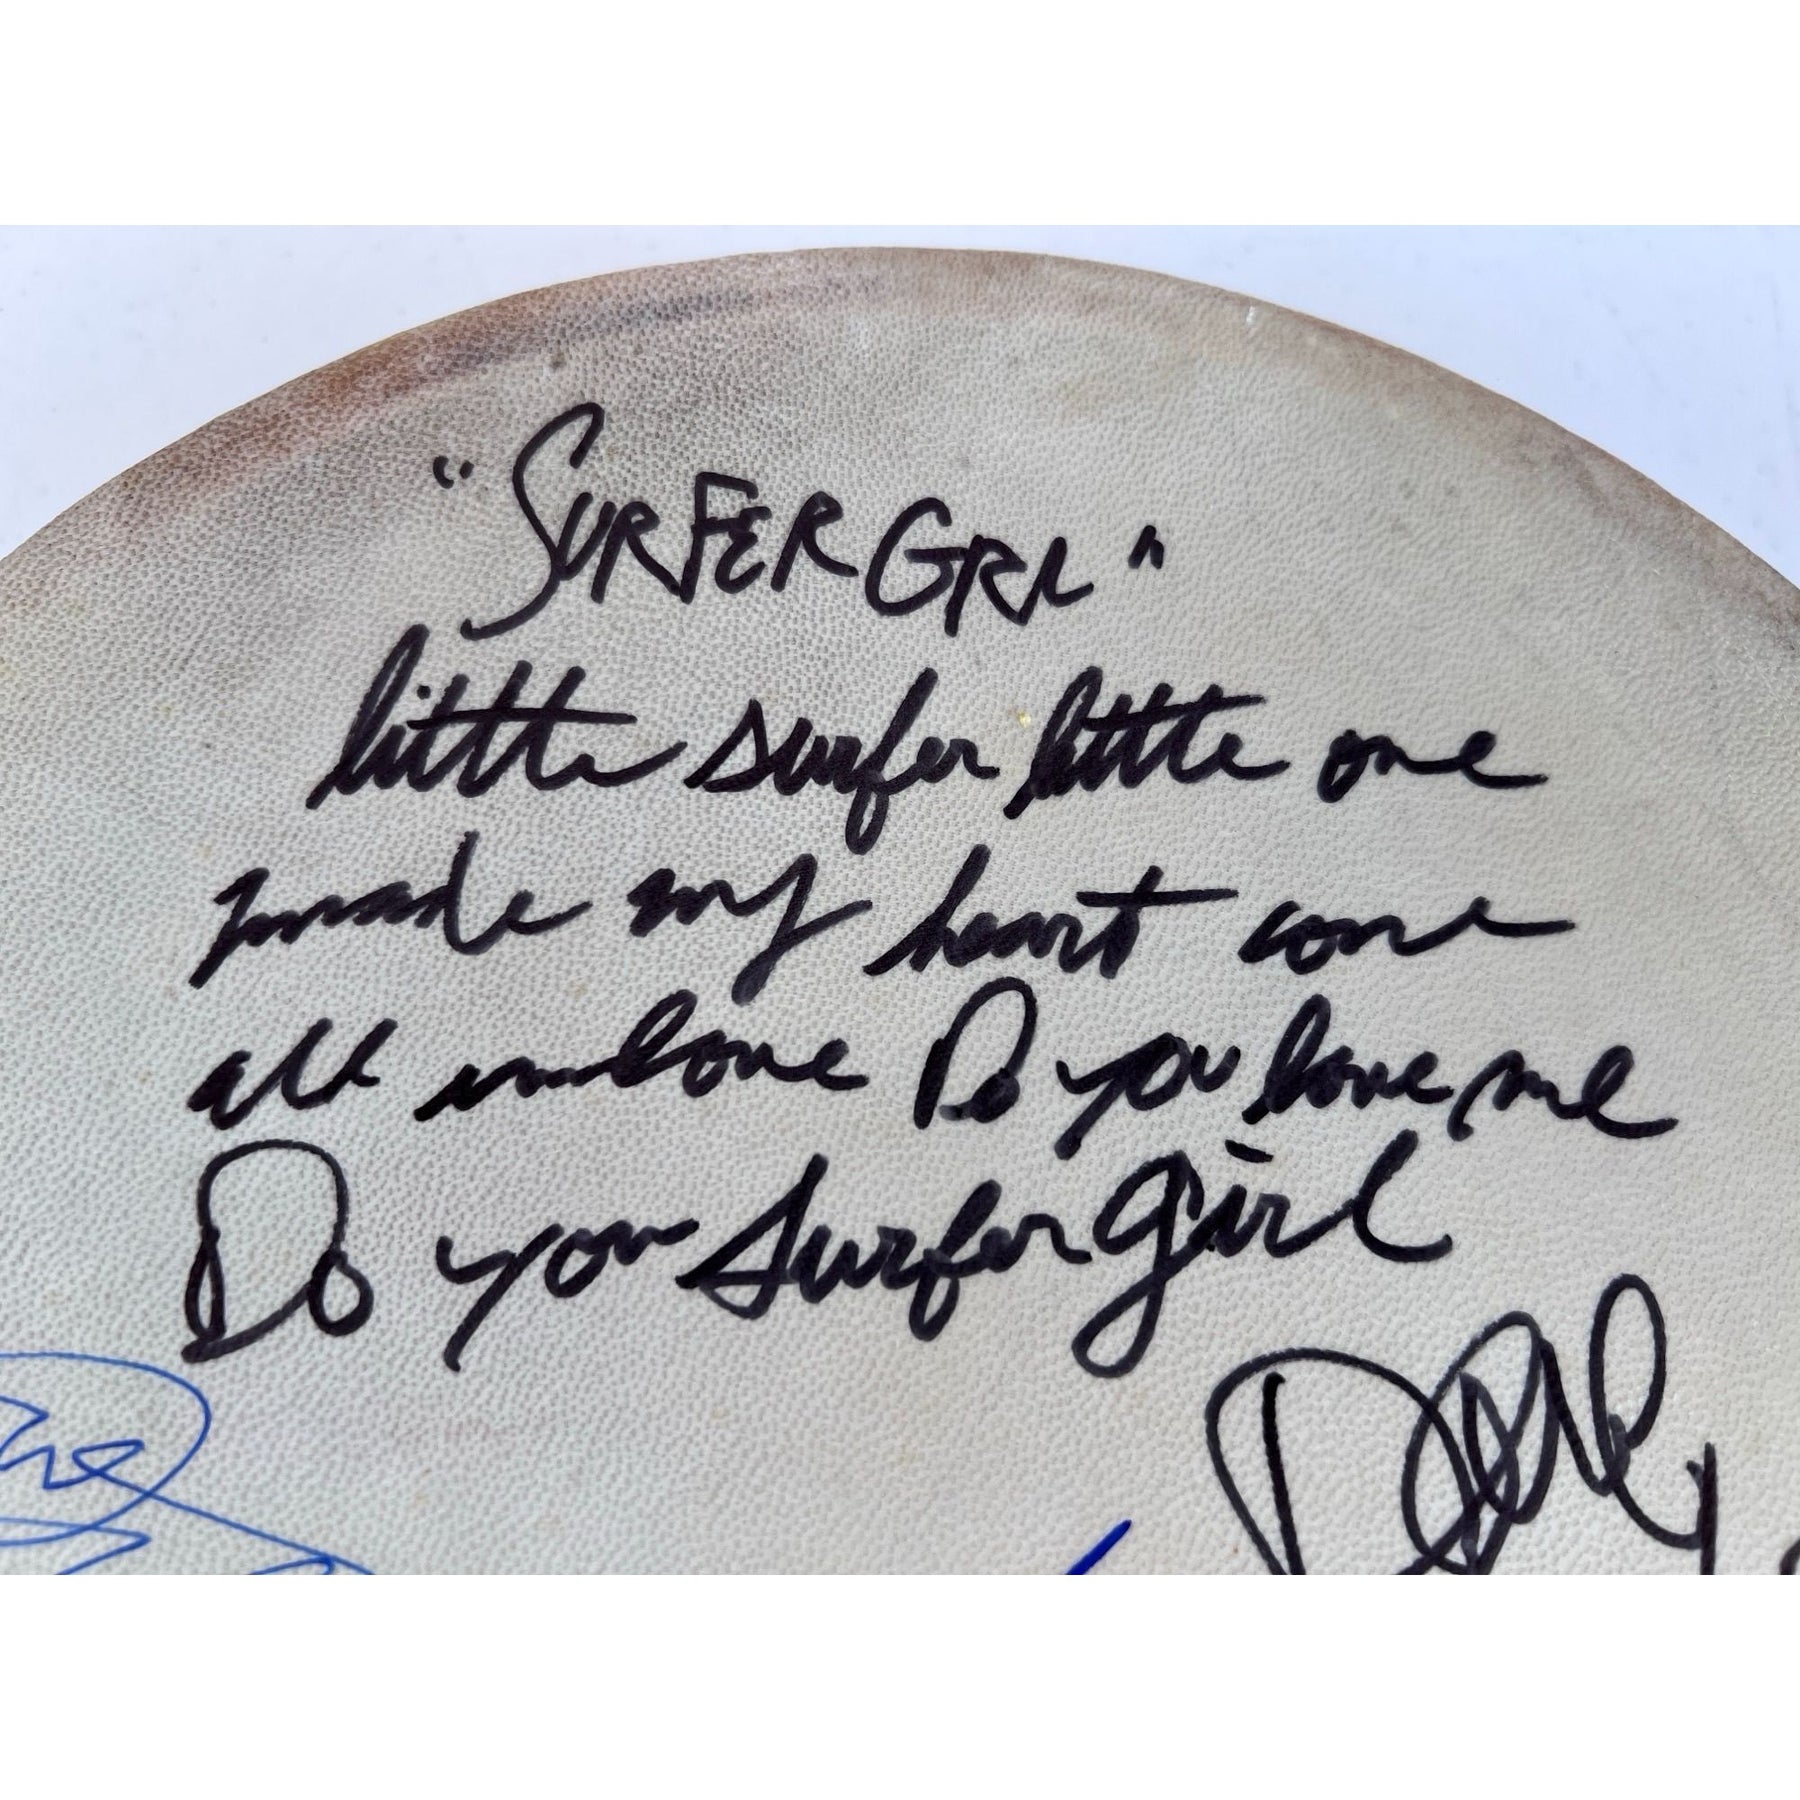 "SURFER GRL"
little surfer little one
made my heart come
all undone Do you love me
Do you surfer girl